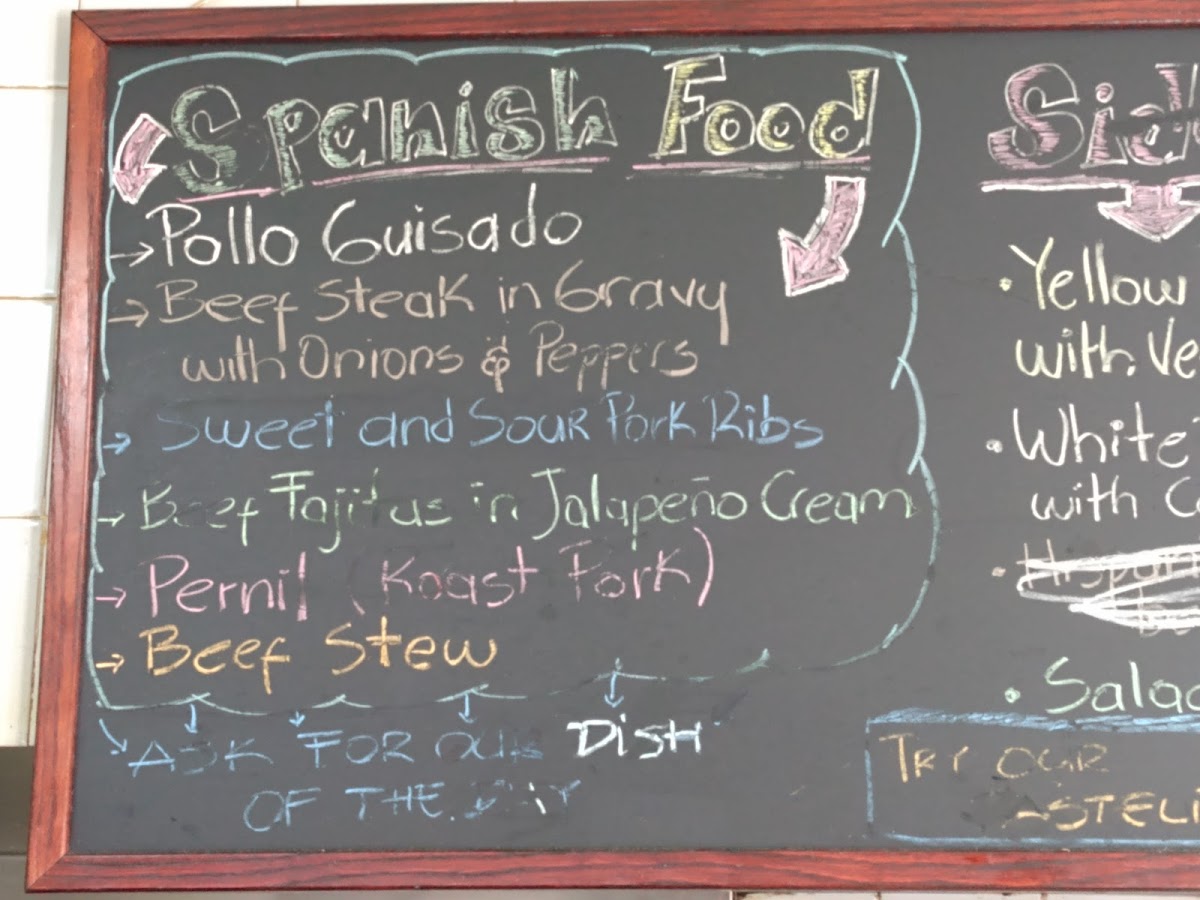 Spanish Food
Pollo Guisado
Beef Steak in Gravy
with Onions & Peppers
Sweet and Sour Pork Ribs
Beef Fajitas in Jalapeño Cream
Pernil (Roast Pork)
Beef Stew
ASK FOR OUR DISH
OF THE DAY
Yellow
with
White
with
TRY OUR